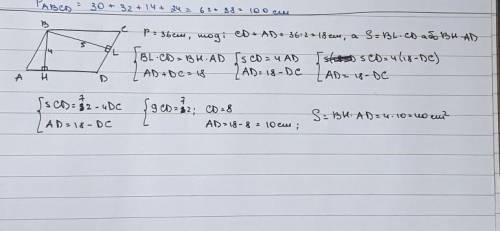 P_ABCD = 30 + 32 + 14 + 24 = 62 + 38 = 100 cm
B C
5
4
L
A H D
P = 36cm, тоді CD + AD = 36:2 = 18cm, а S = BL·CD або BH·AD
{ BL·CD = BH·AD
AD + DC = 18
{ 5CD = 4AD
AD = 18 - DC
{ 5CD = 4(18 - DC)
AD = 18 - DC
{ 5CD = 72 - 4DC
AD = 18 - DC
{ 9CD = 72; CD = 8
AD = 18 - 8 = 10cm;
S = BH·AD = 4·10 = 40cm²